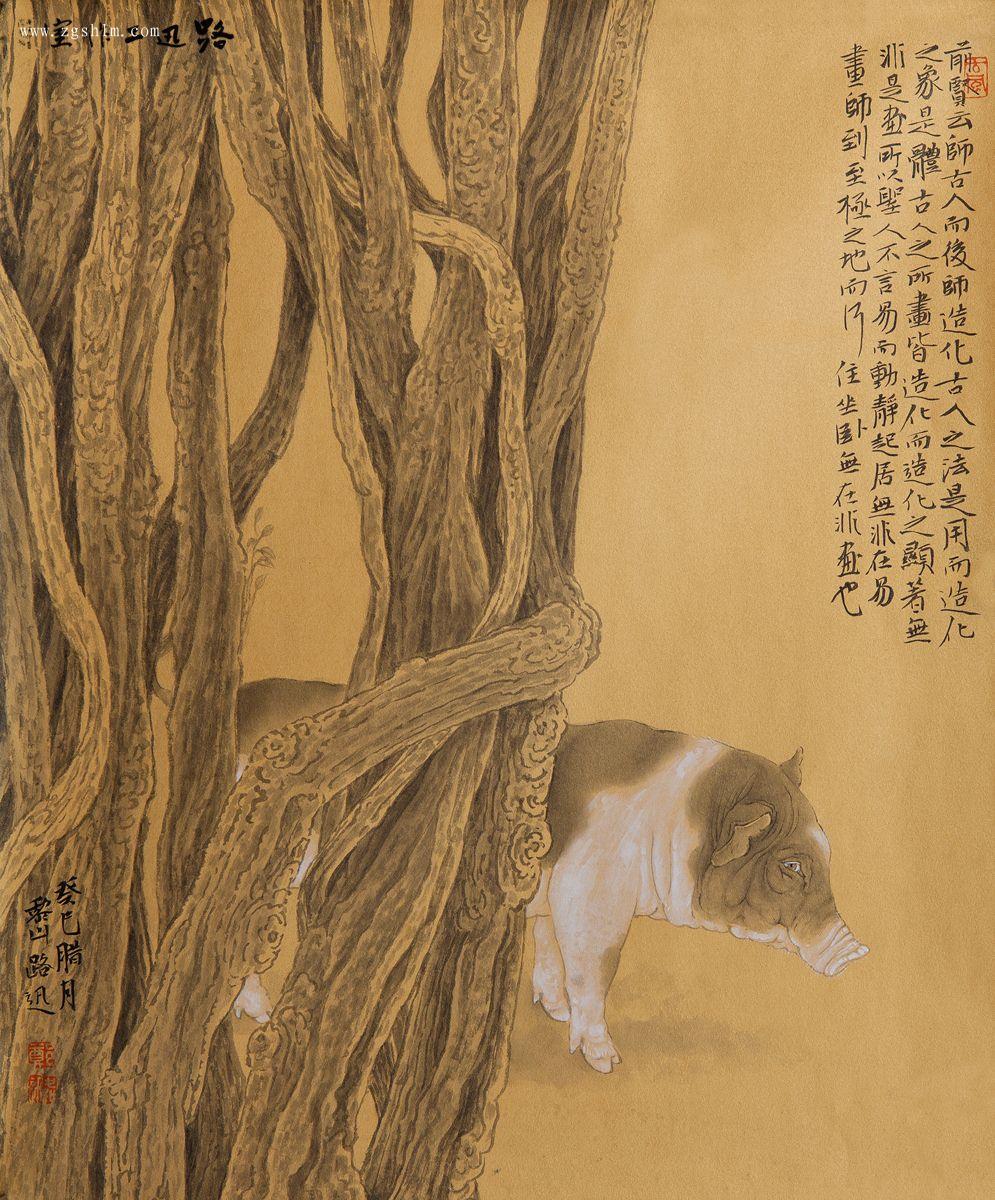 www.zgshlm.com
路迅工作室
前賢云師古人而後師造化古人之法是用而造化
之象是體古人之所畫皆造化而造化之顯著無
非是畫所以聖人不言易而動靜起居無非在易
畫師到至極之地而行住坐臥無在非畫也
癸巳腊月
路迅